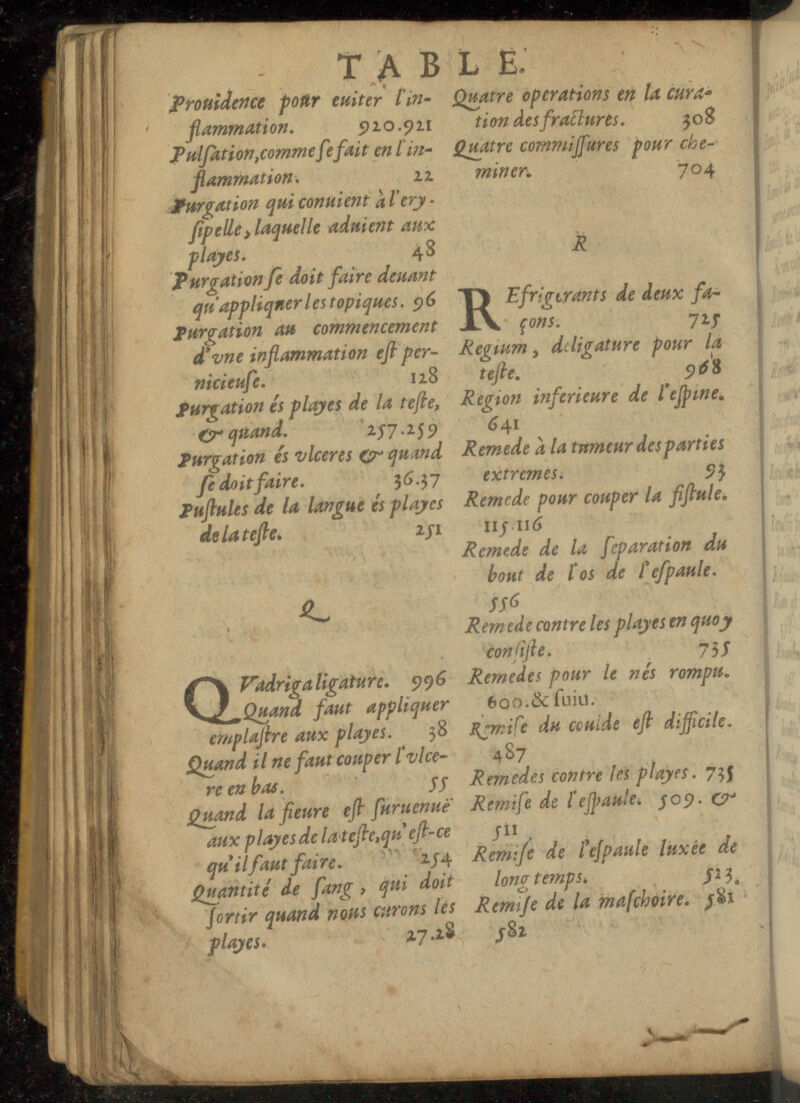 TABLE.
Prouidence pour euiter l'in-
flammation. 920.921
Pulſation,comme ſe fait en l'in-
flammation. 22
Purgation qui conuient à l'ery-
ſipelle, laquelle aduient aux
playes. 48
Purgation ſe doit faire deuant
qu'appliquer les topiques. 96
Purgation au commencement
d'vne inflammation eſt per-
nicieuſe. 128
Purgation és playes de la teſte,
& quand. 257.259
Purgation és vlceres & quand
ſe doit faire. 36.37
Puſtules de la langue és playes
de la teſte. 251
Q
QVadriga ligature. 996
Quand faut appliquer
emplaſtre aux playes. 38
Quand il ne faut couper l'vlce-
re en bas. 55
Quand la fieure eſt ſuruenuë
aux playes de la teſte,qu'eſt-ce
qu'il faut faire. 254
Quantité de ſang, qui doit
ſortir quand nous curons les
playes. 27.28
Quatre operations en la cura-
tion des fractures. 308
Quatre commiſſures pour che-
miner. 704
R
REfrigerants de deux fa-
çons. 725
Regium, deligature pour la
teſte. 968
Region inferieure de l'eſpine.
641
Remede à la tumeur des parties
extremes. 93
Remede pour couper la fiſtule.
115.116
Remede de la ſeparation du
bout de l'os de l'eſpaule.
556
Remede contre les playes en quoy
conſiſte. 735
Remedes pour le nés rompu.
600.& ſuiu.
Remiſe du coulde eſt difficile.
487
Remedes contre les playes. 735
Remiſe de l'eſpaule. 509. &
511
Remiſe de l'eſpaule luxée de
long temps. 513.
Remiſe de la maſchoire. 581
582